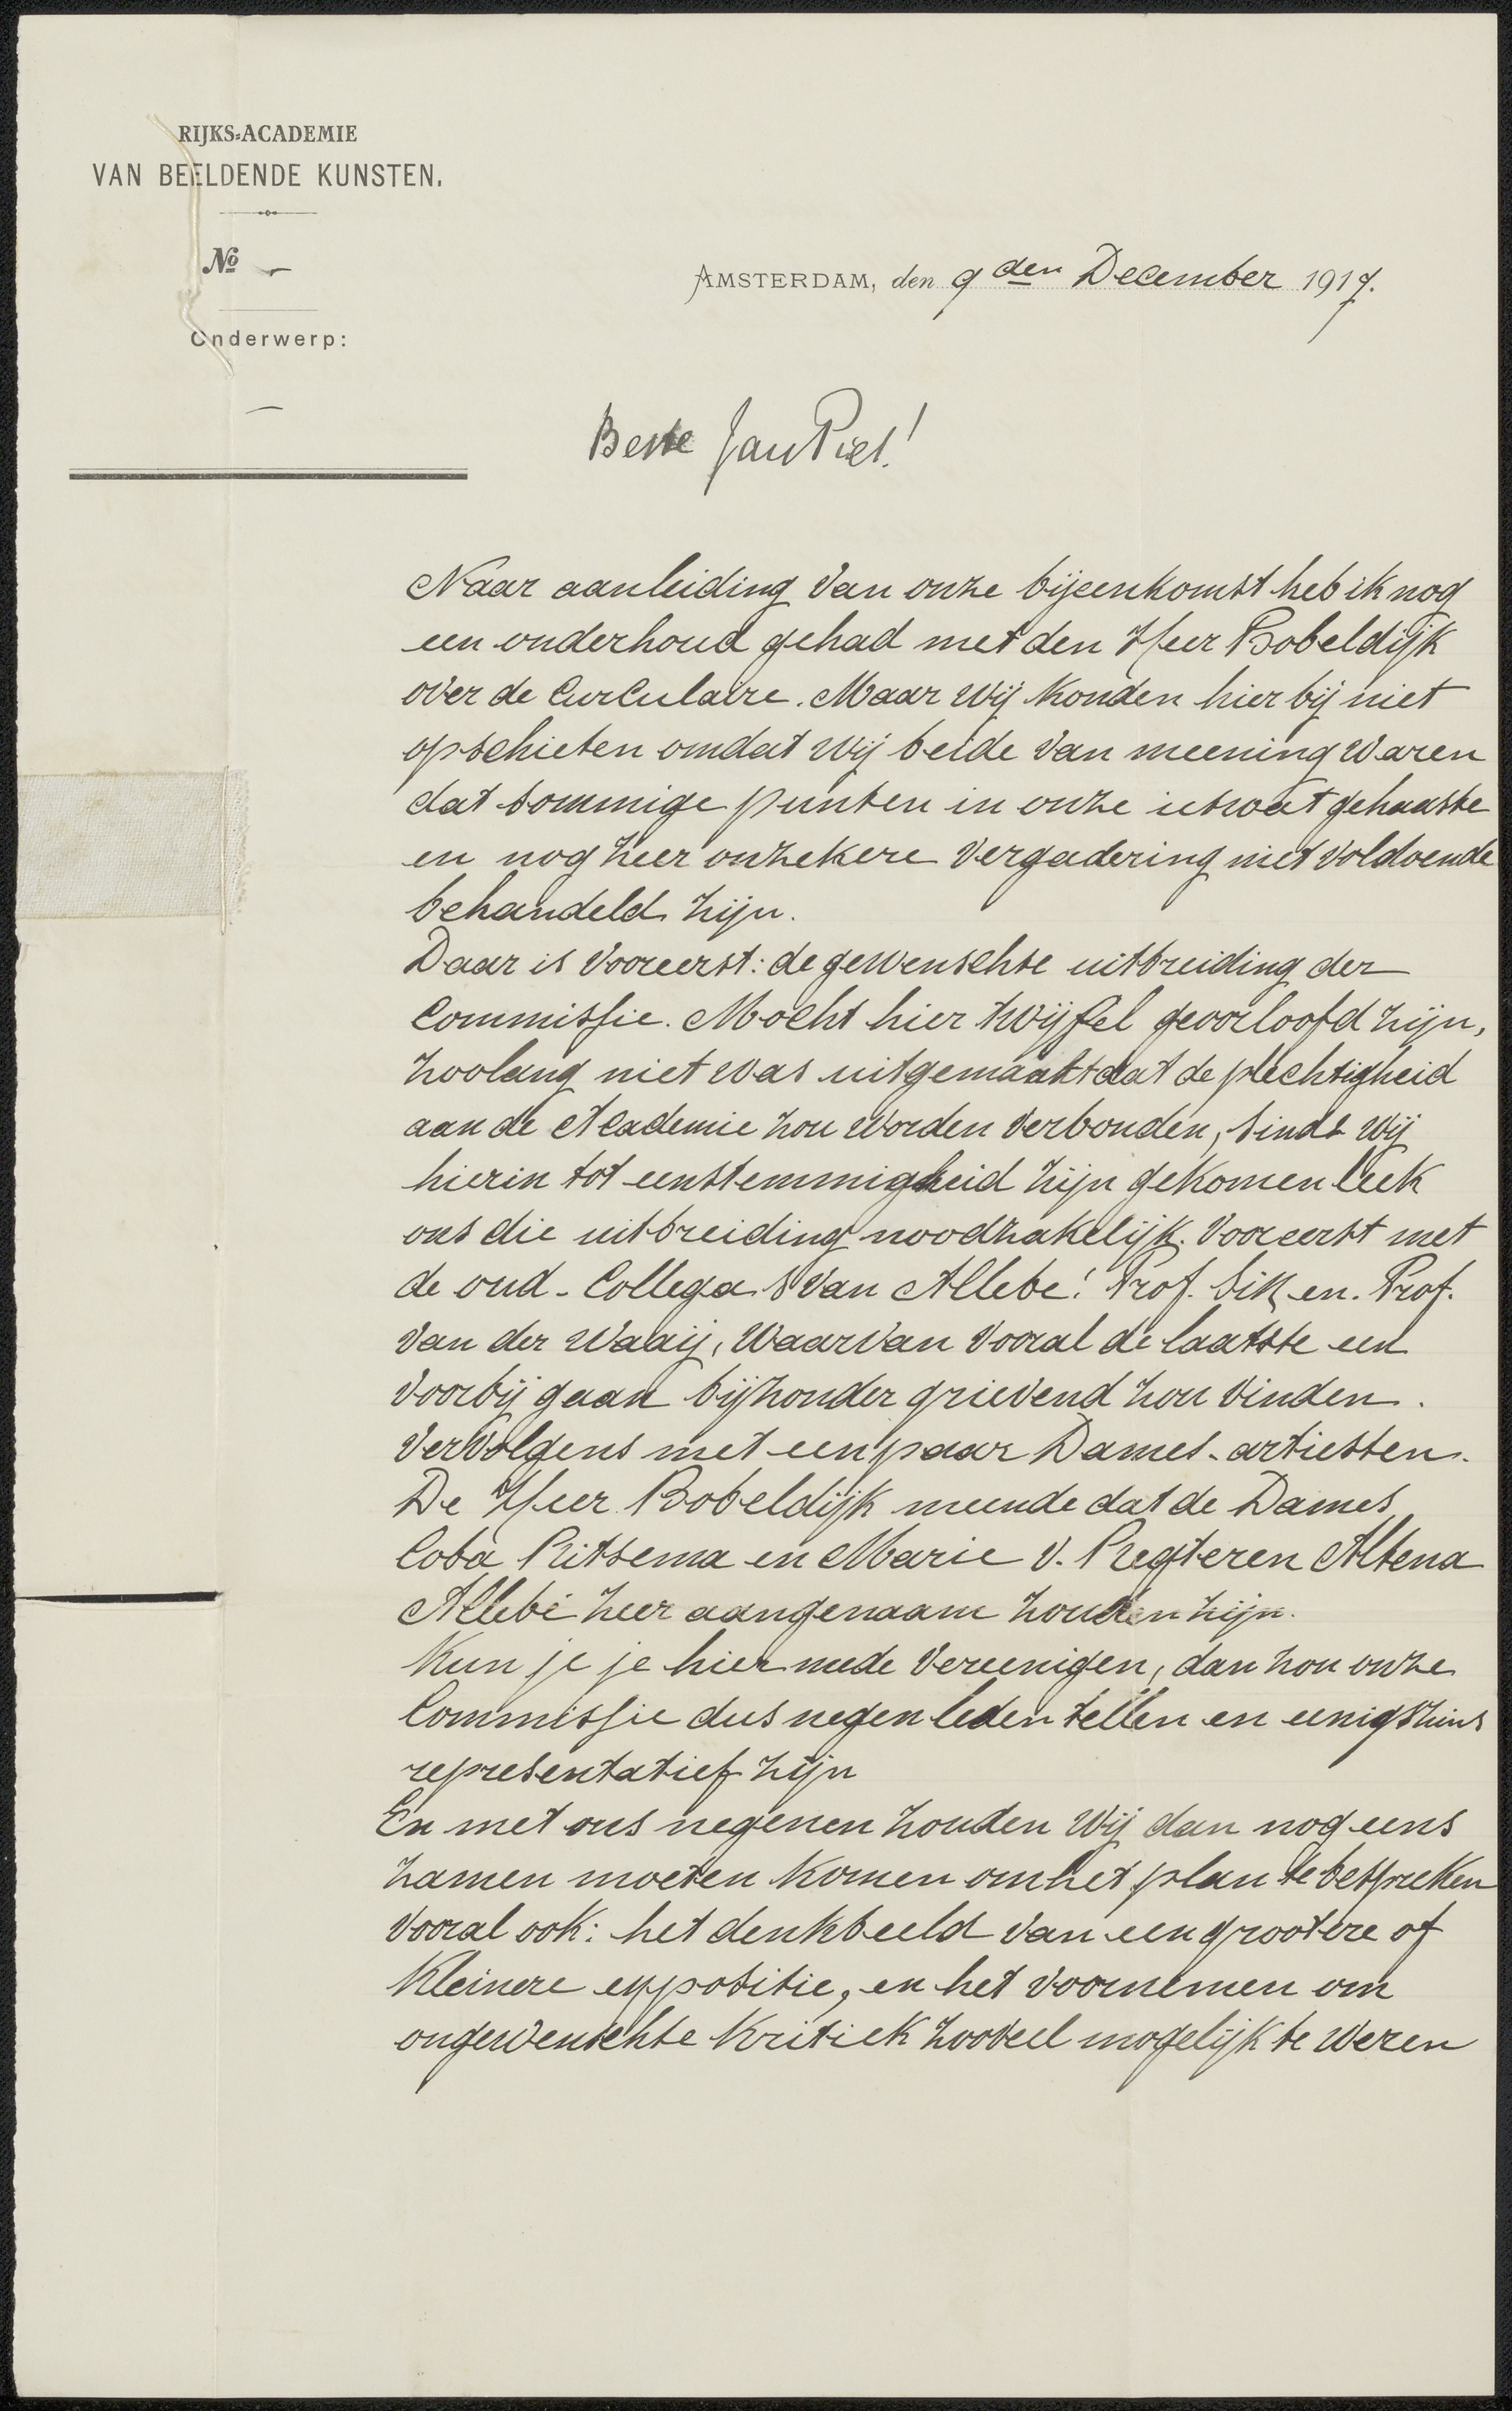 RIJKS-ACADEMIE
VAN BEELDENDE KUNSTEN.
No –
Onderwerp:
–
AMSTERDAM, den 9 den December 1917.
Beste Jan Piet!
Naar aanleiding van onze bijeenkomst heb ik nog
een onderhoud gehad met den Heer Bobeldijk
over de Curculaire. Maar wij konden hier bij niet
opschieten omdat wij beide van meening waren
dat sommige punten in onze ietwat gehaaste
en nog zeer onzekere vergadering niet voldoende
behandeld zijn.
Daar is vooreerst: de gewenschte uitbreiding der
Commissie. Mocht hier twijfel geoorloofd zijn,
zoolang niet was uitgemaakt dat de plechtigheid
aan de Academie zou worden verbonden, sinds wij
hierin tot eenstemmigheid zijn gekomen leek
ons die uitbreiding noodzakelijk. Vooreerst met
de oud-Collega's van Allebé: Prof. Six en. Prof.
van der Waaij, waarvan vooral de laatste een
voorbij gaan bijzonder grievend zou vinden.
Vervolgens met een paar Dames-artiesten.
De Heer Bobeldijk meende dat de Dames
Coba Ritsema en Marie v. Regteren Altena
Allebé zeer aangenaam zouden zijn.
Kun je je hier mede vereenigen, dan zou onze
Commissie dus negen leden tellen en eenigszins
representatief zijn
En met ons negenen zouden wij dan nog eens
zamen moeten komen om het plan te bespreken
vooral ook: het denkbeeld van een grootere of
kleinere expositie, en het voornemen om
ongewenschte kritiek zooveel mogelijk te weren